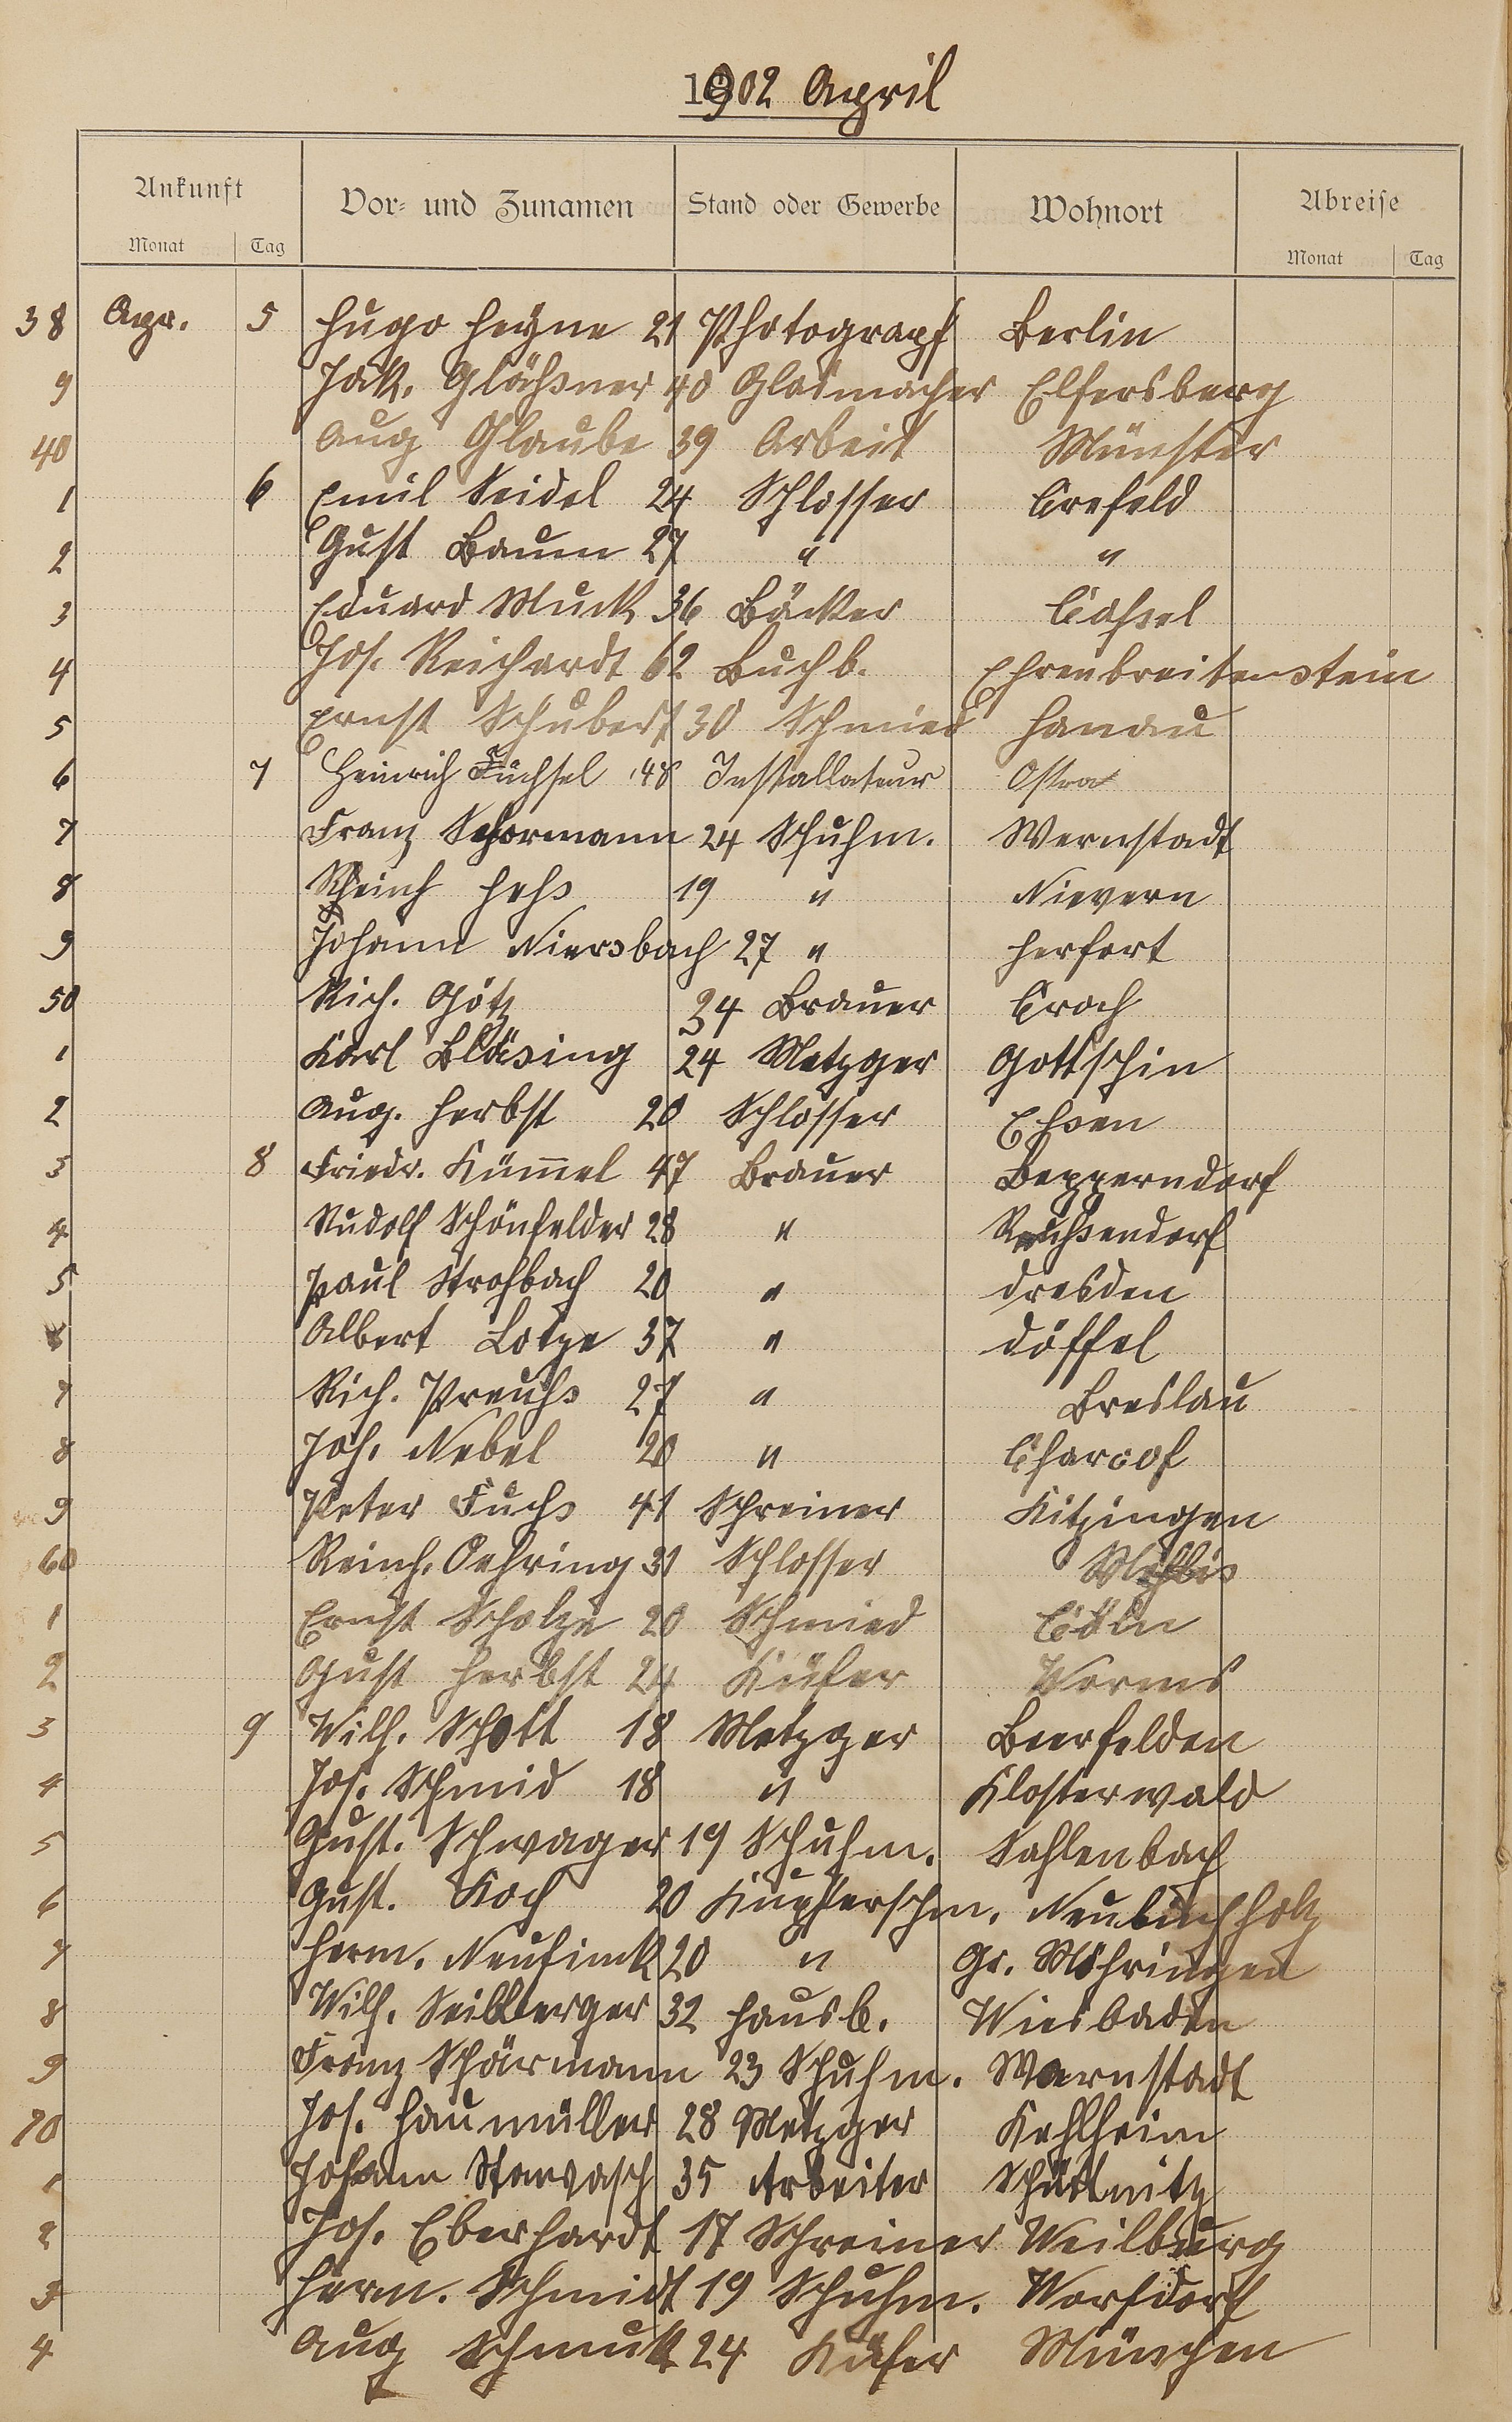 1902 April
Ankunft Vor- und Zunamen Stand oder Gewerbe Wohnort Abreise
Monat Tag Monat Tag
38 Apr. 5 Hugo Heyne 21 Photograpf Berlin
9 Jak. Gläßner 40 Glasmacher Elfersberg
40 Aug Glaube 39 Arbeit Münster
1 6 Emil Seidel 24 Schlosser Crefeld
2 Gust Baum 27 " "
3 Eduard Muck 36 Bäcker Caßel
4 Jos. Reichardt 62 Buchb. Ehrenbreitenstein
5 Ernst Schubert 30 Schmied Hanau
6 7 Heinrich Füchsel 48 Installateur Ostra
7 Franz Schormann 24 Schuhm. Wernstadt
8 Heß 19 " Nievern
9 Johann Niersbach 27 " Herfort
50 Rich. Götz 34 Brauer Croch
1 Karl Bläsing 24 Metzger Gottschin
2 Aug. Herbst 20 Schlosser Eßen
3 8 Friedr. Küm̅el 47 Brauer Bepperndorf
4 Rudolf Schönfelder 28 " Reußendorf
5 Paul Strohbach 20 " Dresden
6 Albert Lotze 37 " Döffel
7 Rich. Preuß 27 " Breslau
8 Joh. Nebel 20 "
9 Peter Fuchs 41 Schreiner Kitzingen
60 Reinh. Oehring 31 Schlosser Mehlis
1 Ernst Scholze 20 Schmied Cöln
2 Gust Herbst 24 Küfer Worms
3 9 Wilh. Schott 18 Metzger Beerfelden
4 Jos. Schmid 18 " Klosterwald
5 Gust. Schwager 19 Schuhm. Sahlenbach
6 Gust. Koch 20 Kupferschm. Neubuchholz
7 Herm. Neufink 20 " Gr. Möhringen
8 Wilh. Seilberger 32 Hausb. Wiesbaden
9 Franz Schärmann 23 Schuhm. Warnstadt
70 Jos. Haumüller 28 Metzger Kehlheim
1 Johann Starvasch 35 Arbeiter Schüttnitz
2 Jos. Eberhardt 17 Schreiner Weilburg
3 Herm. Schmidt 19 Schuhm. Worfdorf
4 Aug Schmuk 24 Küfer München